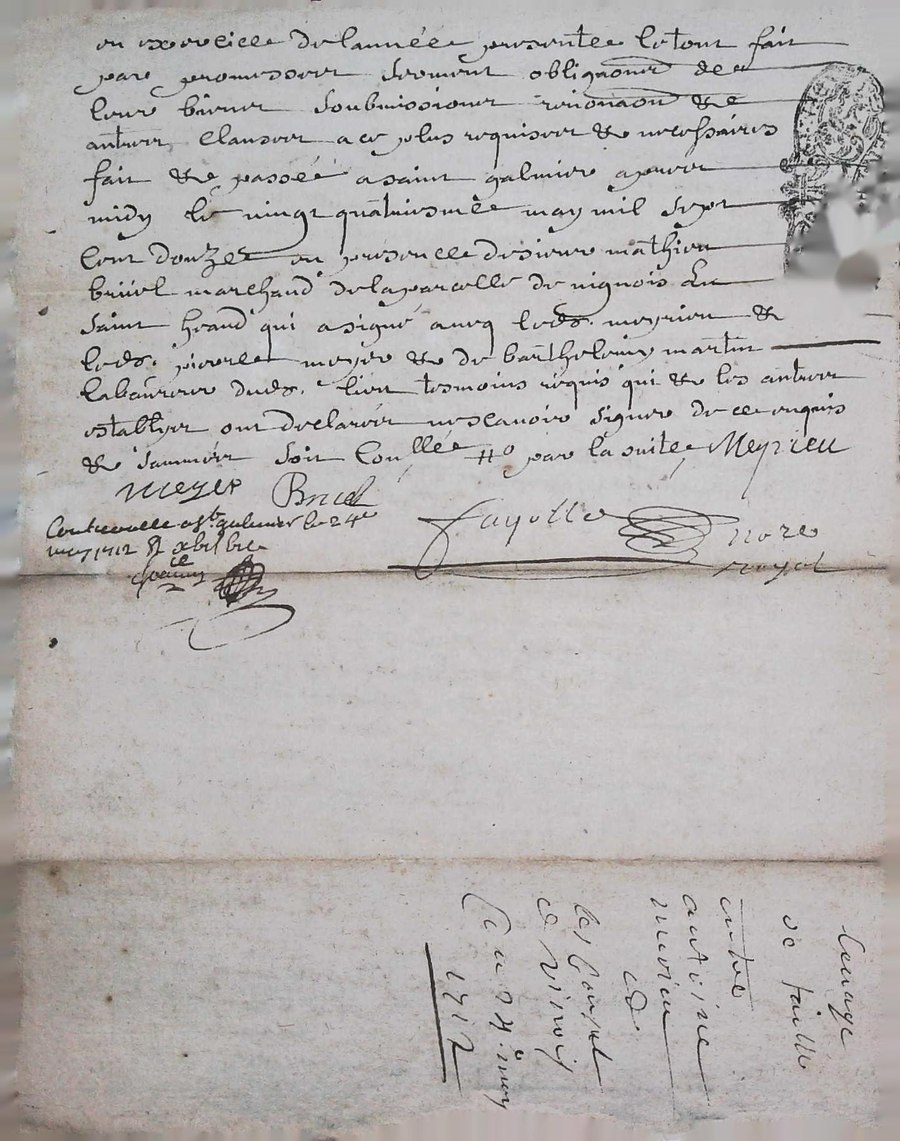 en exercice de lannée presente le tout fait
par promesses serment obligaõns de
leurs biens soubmissions renonaõn &
autres clauses a ce plus requises & necessaires
fait & passée a saint galmier apres
midy le vingt quatriesme may mil sept
cent douze en presence de sieur mathieu
bruel marchand de la parcelle de vignois en
saint heand qui a signé avecq leds. meyrieu &
leds. pierre meyer & de barthelemy martin
laboureur duds. lieu tesmoins requis qui & les autres
establys ont declarer ne scavoir signer de ce enquis
& sommés soit coullée par la suitte Meyrieu
meyer Bruel
Controolle a st galmier le 24e
may 1712
fayolle nore
royal
de taille
entre
antoine
meirieu
&
les consul
de vinois
du 24e may
1712